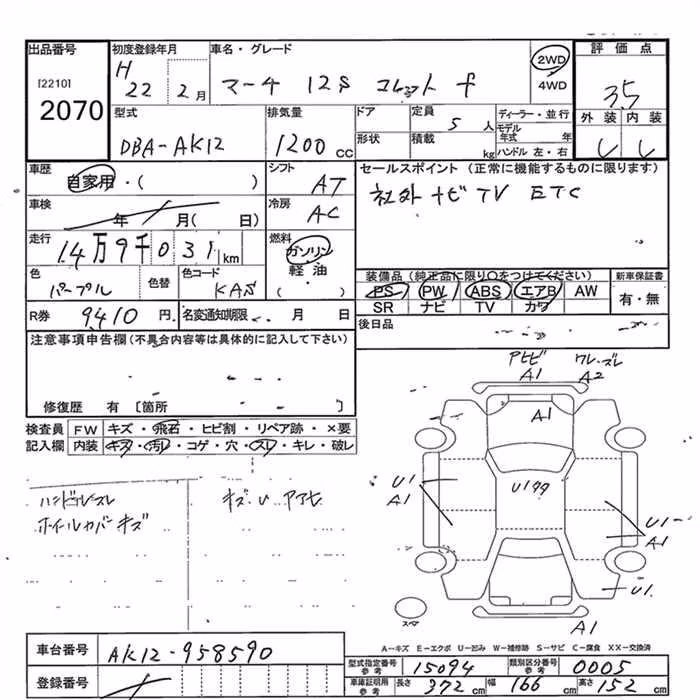 出品番号
[2210]
2070
初度登録年月
H 22 2月
車名・グレード
マーチ 12S コレット f
2WD
4WD
評価点
3.5
外装 内装
型式
DBA-AK12
排気量
1200 cc
ドア
形状
定員
5 人
積載
kg
ディーラー・並行
モデル年式 年
ハンドル 左・右
車歴
自家用・( )
シフト
AT
セールスポイント (正常に機能するものに限ります)
社外ナビ TV ETC
車検
年 月( 日)
冷房
AC
走行
14万9千031 km
燃料
ガソリン
軽油
( )
色
パープル
色替
色コード
KAS
装備品 (純正品に限り○をつけてください)
PS PW ABS エアB AW
SR ナビ TV カワ
新車保証書
有・無
R券
9410円
名変通知期限 月 日
後日品
注意事項申告欄(不具合内容等は具体的に記入して下さい)
修復歴 有 [箇所 ]
検査員記入欄
FW キズ・飛石・ヒビ割・リペア跡・×要
内装 キズ・汚レ・コゲ・穴・スレ・キレ・破レ
ハンドルスレ
ホイールカバーキズ
キズ・U
A1
A2
A1
U1
A1
U1
A1
U1
A1
スペア
A-キズ E-エクボ U-凹み W-補修跡 S-サビ C-腐食 XX-交換済
車台番号
AK12-958590
登録番号
型式指定番号 参考
15094
類別区分番号 参考
0005
車庫証明用 参考
長さ 372 cm
幅 166 cm
高さ 152 cm